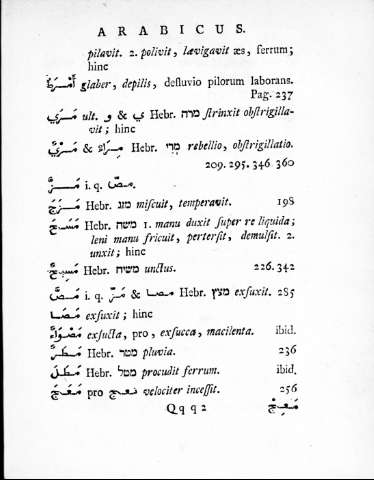 ARABICUS.
pilavit. 2. polivit, lævigavit æs, ferrum;
hinc
أَمْرَطُ glaber, depilis, defluvio pilorum laborans.
Pag. 237
مَرَي ult. و & ي Hebr. מרה ſtrinxit obſtrigilla-
vit; hinc
مَرْيٌ & مِرَاءٌ Hebr. מרי rebellio, obſtrigillatio.
209. 295. 346 360
مَزَّ i. q. مصّ.
مَزَجَ Hebr. מזג miſcuit, temperavit. 198
مَسَحَ Hebr. משח 1. manu duxit ſuper re liquida;
leni manu fricuit, perterſit, demulſit. 2.
unxit; hinc
مَسِيحٌ Hebr. משיח unctus. 226. 342
مَصَّ i. q. مَزّ & مصا Hebr. מצץ exſuxit. 285
مَصَا exſuxit; hinc
مَصْوَاءُ exſucta, pro, exſucca, macilenta. ibid.
مَطَرٌ Hebr. מטר pluvia. 236
مَطَلَ Hebr. מטל procudit ferrum. ibid.
مَعَجَ pro نعج velociter inceſſit. 256
Qq q 2 مَعِجٌ